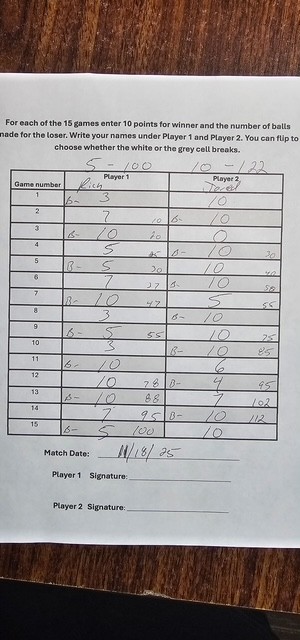 For each of the 15 games enter 10 points for winner and the number of balls
made for the loser. Write your names under Player 1 and Player 2. You can flip to
choose whether the white or the grey cell breaks.
5 - 100 10 - 122
Player 1 Player 2
Game number Rich Jared
1 B- 3 10
2 7 10 B- 10
3 B- 10 20 0
4 5 25 B- 10 30
5 B- 5 30 10 40
6 7 37 B- 10 50
7 B- 10 47 5 55
8 3 B- 10
9 B- 5 55 10 75
10 3 B- 10 85
11 B- 10 6
12 10 78 B- 4 95
13 B- 10 88 7 102
14 7 95 B- 10 112
15 B- 5 100 10
Match Date: 11/18/25
Player 1 Signature:
Player 2 Signature: